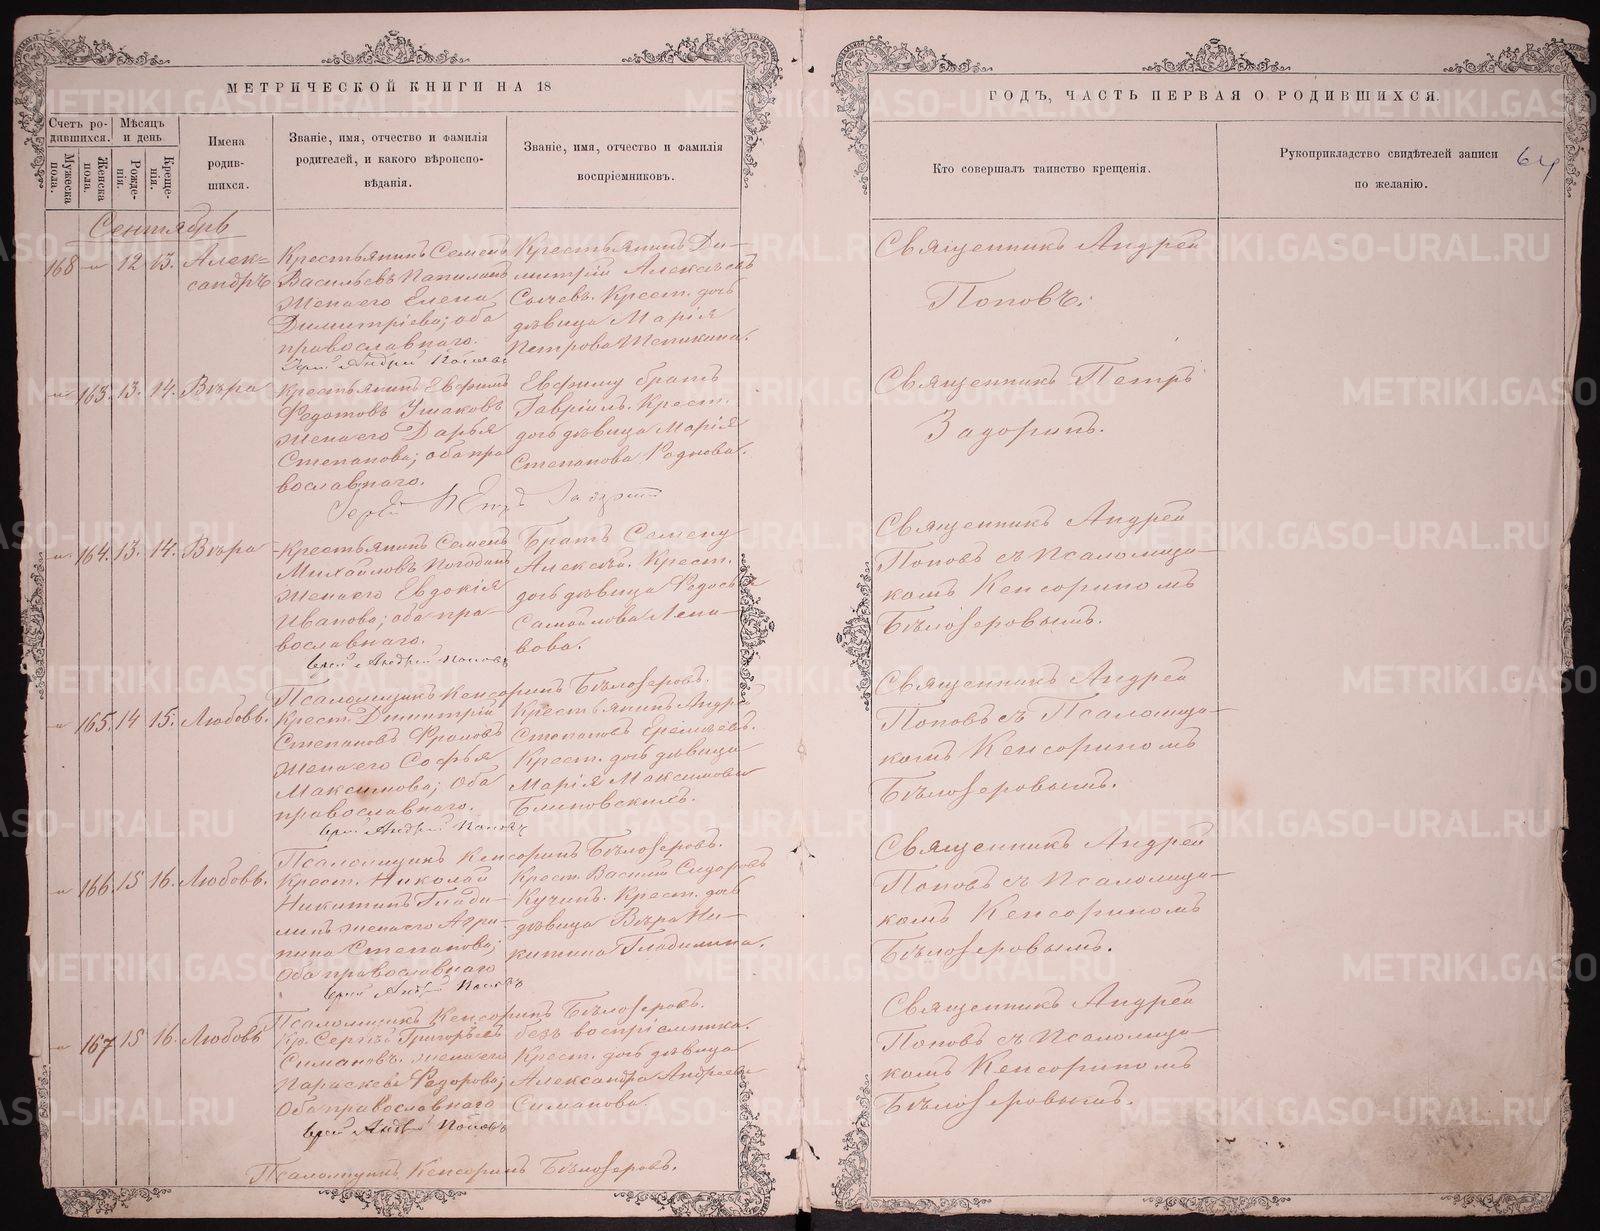 МЕТРИЧЕСКОЙ КНИГИ НА 18
Счетъ ро-
дившихся.
Мѣсяцъ
и день.
Мужеска
пола.
Женска
пола.
Рожде-
нія.
Креще-
нія.
Имена
родив-
шихся.
Званіе, имя, отчество и фамилія
родителей, и какого вѣроиспо-
вѣданія.
Званіе, имя, отчество и фамилія
воспріемниковъ.
Сентябрь
168 12 13. Алек-
сандръ
Крестьянинъ Семенъ
Васильевъ
Жена его Елена
Димитріева; оба
православнаго.
Іерей Андрей Поповъ
Крестьянинъ Ди-
митрій Алексѣевъ
Сычевъ. Крест. дочь
дѣвица Марія
Петрова
163. 13. 14. Вѣра
Крестьянинъ Евфимъ
Федотовъ Ушаковъ
Жена его Дарья
Степанова; оба пра
вославнаго.
Іерей Петръ Задоринъ
Евфиму братъ
Гавріилъ. Крест.
дочь дѣвица Марія
Степанова
164. 13. 14. Вѣра
Крестьянинъ Семенъ
Михайловъ Погодинъ
Жена его Евдокія
Иванова; оба пра-
вославнаго.
Іерей Андрей Поповъ
Псаломщикъ Кенсоринъ Бѣлозеровъ.
Братъ Семену
Алексѣй. Крест.
дочь дѣвица Федосья
Самойлова
165. 14 15. Любовь.
Крест. Димитрій
Степановъ Фроловъ
Жена его Софья
Максимова; Оба
православнаго.
Іерей Андрей Поповъ
Псаломщикъ Кенсоринъ Бѣлозеровъ.
Крестьянинъ Андре
Степановъ Еремѣевъ.
Крест. дочь дѣвица
Марія Максимова
Блиновскихъ.
166. 15 16. Любовь.
Крест. Николай
Никитинъ Глади-
линъ жена его Агри-
пина Степанова;
Оба православнаго
Іерей Андрей Поповъ
Псаломщикъ Кенсоринъ Бѣлозеровъ.
Крест. Василій Сидоровъ
Кучинъ. Крест. дочь
дѣвица Вѣра Ни-
китина Гладилина.
167 15 16. Любовь
Кр. Сергѣй Григорьевъ
Симановъ. жена его
Параскева Федорова;
Оба православнаго
Іерей Андрей Поповъ
Псаломщикъ Кенсоринъ Бѣлозеровъ.
безъ воспріемника.
Крест. дочь дѣвица
Александра Андреева
Симанова
ГОДЪ, ЧАСТЬ ПЕРВАЯ О РОДИВШИХСЯ.
Кто совершалъ таинство крещенія.
Рукоприкладство свидѣтелей записи
по желанію.
64
Священникъ Андрей
Поповъ.
Священникъ Петръ
Задоринъ.
Священникъ Андрей
Поповъ съ Псаломщи-
комъ Кенсориномъ
Бѣлозеровымъ.
Священникъ Андрей
Поповъ съ Псаломщи-
комъ Кенсориномъ
Бѣлозеровымъ.
Священникъ Андрей
Поповъ съ Псаломщи-
комъ Кенсориномъ
Бѣлозеровымъ.
Священникъ Андрей
Поповъ съ Псаломщи-
комъ Кенсориномъ
Бѣлозеровымъ.
METRIKI.GASO-URAL.RU